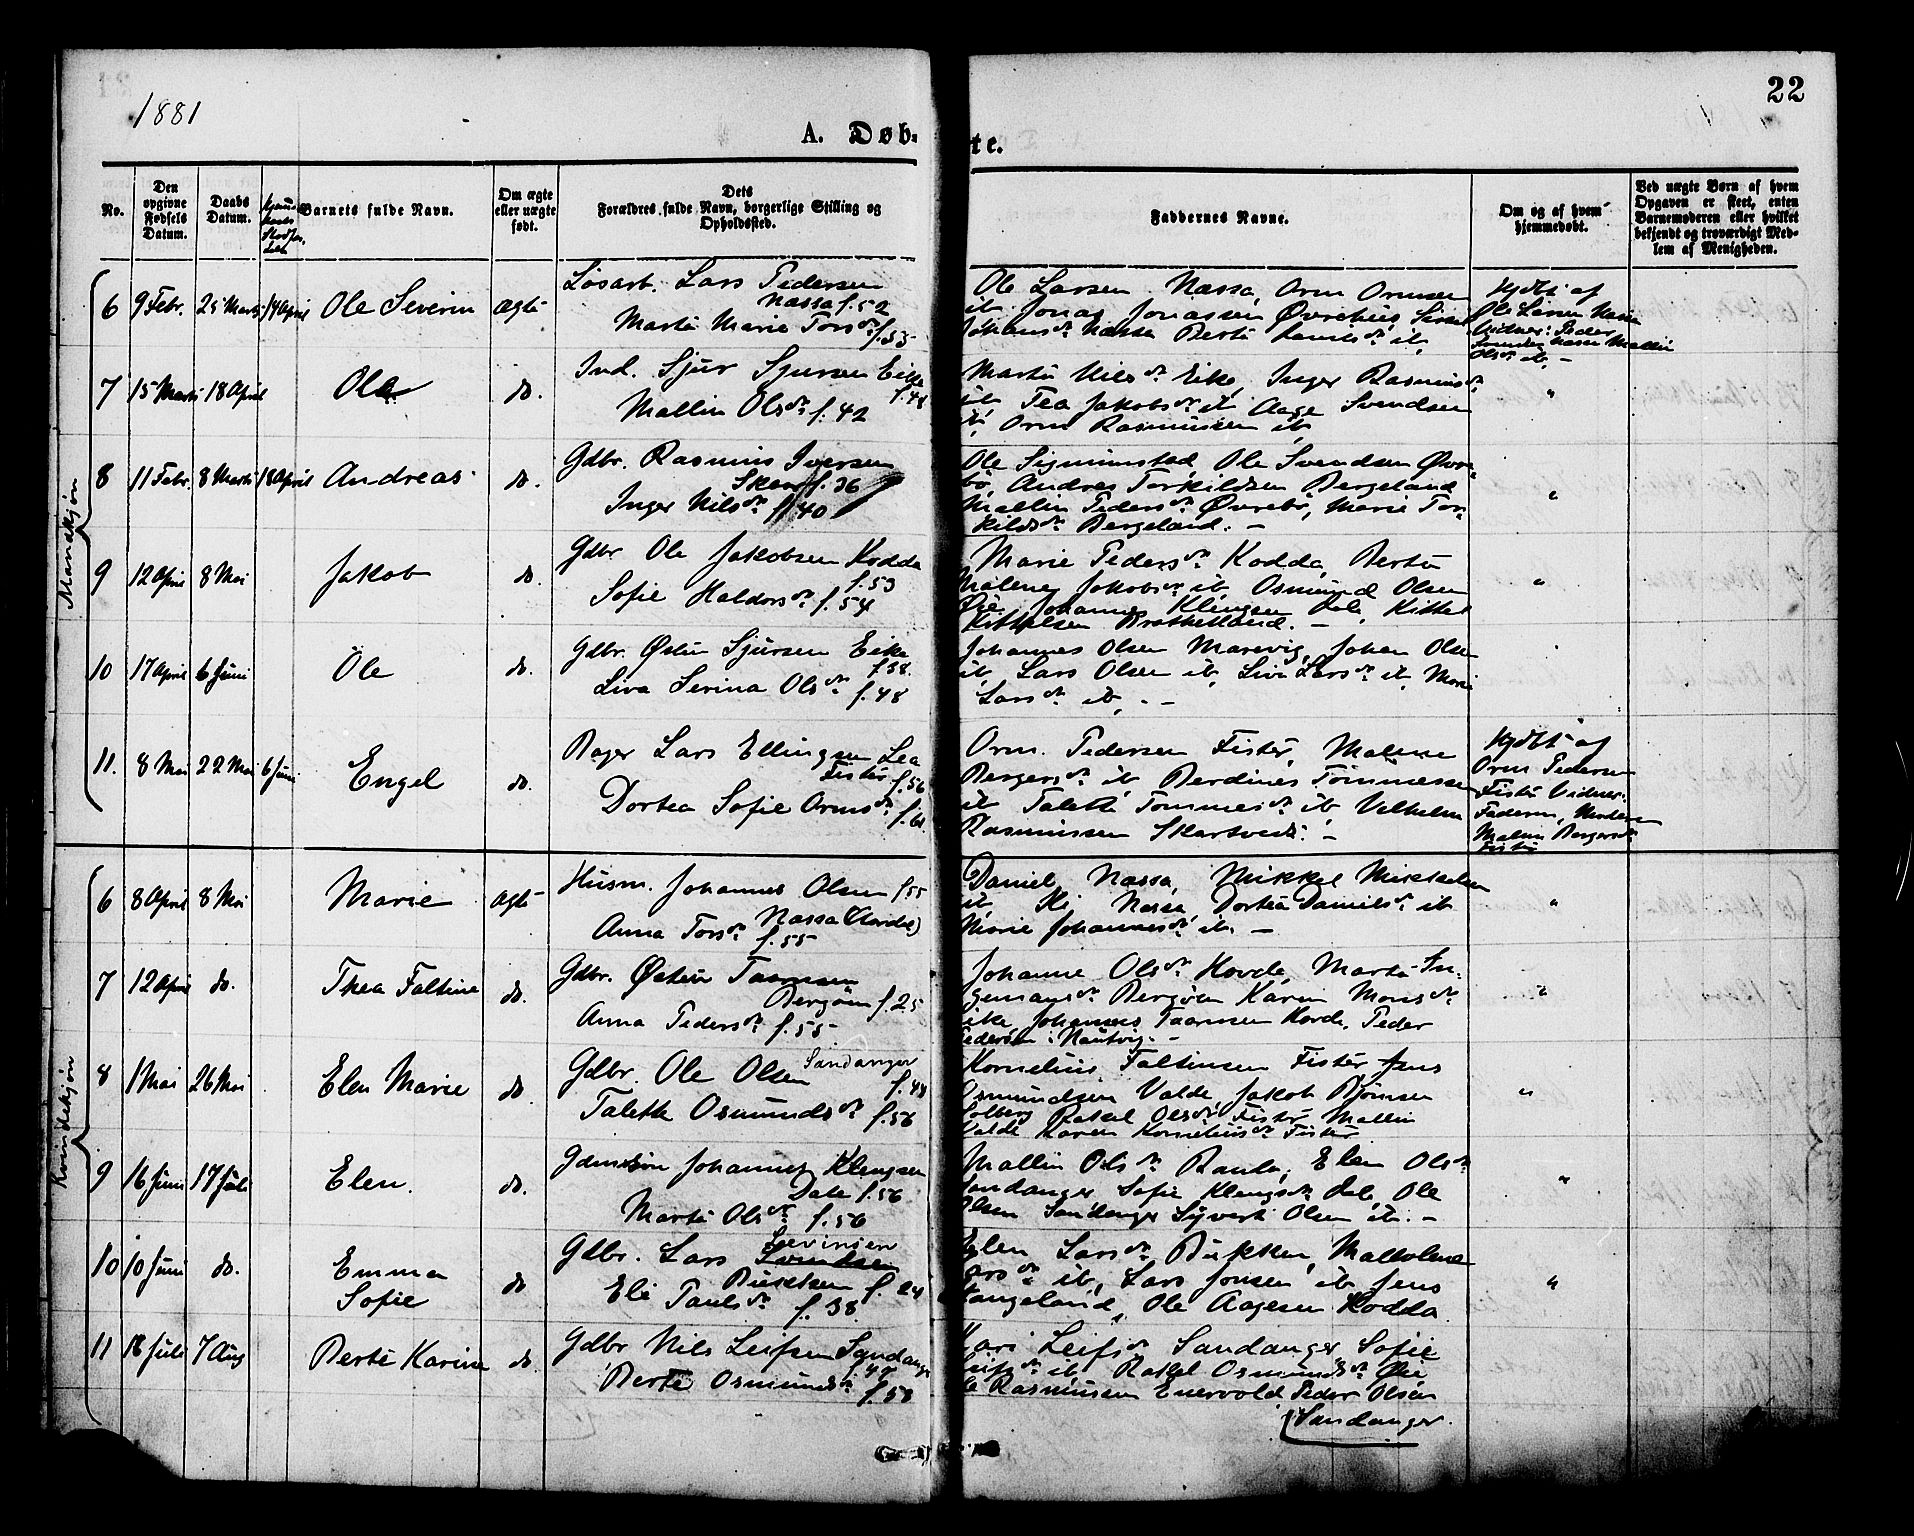 1881
22
A. Døb-
te.
No.
Den opgivne Fødsels Datum.
Daabs Datum.
Barnets fulde Navn.
Om ægte eller uægte født.
Dets Forældres fulde Navn, borgerlige Stilling og Opholdssted.
Faddernes Navne.
Om og af hvem hjemmedøbt.
Ved uægte Børn af hvem Opgaven er skeet, enten Barnemoderen eller hvilket bekjendt og troværdigt Medlem af Menigheden.
Mandkjøn
6 9 Febr. 25 Marts 14 April Ole Severin ægte
Løsarb. Lars Pedersen
Nessa f. 52
Marte Marie Torsdr f. 53
Ole Larsen Nessa, Orm Ormsen
ib Jonas Jonassen Øvrehus,
Nessa Berte
Hjdbt af
Ole Larsen Nessa
7 15 Marts 18 April Ole do.
Ind. Sjur Sjursen Eike
f. 48
Mallin Olsdr f. 42
Marte Nilsdr Eike, Inger Rasmusdr
ib Tea Jakobsdr ib Aage Svendsen
ib, Orm Rasmussen ib
"
8 11 Febr. 8 Marts 18 April Andreas do.
Gdbr. Rasmus Iversen
Skar f. 36
Inger Nilsdr f. 40
Ole Sigmundstad, Ole Svendsen Øvre-
bø, Andres Torkildsen Bergeland
Mallin Pedersdr Øvrebø, Marie Tor-
kildsdr Bergeland. -
"
9 12 April 8 Mai Jakob do.
Gdbr Ole Jakobsen Kodda
f. 53
Sofie Haldorsdr f. 54
Marie Pedersdr Kodda, Berte
Malene Jakobsdr ib, Osmund Olsen
Øie, Johannes Klengsen Dale, Kittel
Kittelsen
"
10 17 April 6 Juni Ole do.
Gdbr. Østen Sjursen Eike
f. 38.
Liva Serina Olsdr f. 48
Johannes Olsen Marevig, Johan Olsen
ib, Lars Olsen ib, Siri Larsdr ib, Marie
Larsdr ib, . -
11. 8 Mai 22 Mai 6 Juni Engel do.
Lars Ellingsen Lea
Fister f. 56
Dortea Sofie Ormsdr
f. 61.
Orm Pedersen Fister, Malene
Bergersdr ib Berdines Tommessen
ib Talette Tommesdr ib Velhelm
Rasmussen Skartveit. -
Hjdbt af
Orm Pedersen
Fister Vidner:
Faderen, Moderen
Malene Bergersdr
Fister
Kvindekjøn
6 8 April 8 Mai Marie ægte
Husm. Johannes Olsen f. 55
Nessa (Hordal)
Anna Torsdr f. 55
Daniel Nessa, Mikkel Mikkelsen
ib Nessa, Dortea Danielsdr ib
Marie Johannesdr ib. -
"
7 12 April do. Thea Faltine do.
Gdbr. Østen Taarmsen
Bergøen f. 25
Anna Pedersdr f. 55
Johanne Olsdr Horde, Marte In-
gemansdr Bergøen Karen Monsdr
Eike, Johannes Taarmsen Horde, Peder
Pedersen Nautvig. -
"
8 1 Mai 26 Mai Elen Marie do.
Gdbr. Ole Olsen Sandanger
f. 44
Talette Osmundsdr f. 56
Kornelius Faltinsen Fister Jens
Osmundsen Valde, Jakob Bjørnsen
Solberg Rakel Olsdr Fister Mallin
Valde Karen Korneliusdr Fister
"
9 16 Juni 17 Juli Elen. do.
Gdmdsøn Johannes Klengsen
Dale f. 56
Marte Olsdr f. 56
Mallin Olsdr, Elen Olsdr
Sandanger Sofie Klengsdr Dale, Ole
Olsen Sandanger Syvert Olsen ib. -
"
10 10 Juni do. Emma Sofie do
Gdbr. Lars Sevrinsen Svendsen
f. 24
Eli Paulsdr f. 38.
Elen Larsdr Bukken, Mallolene
Larsdr ib, Lars Jonsen ib Jens
Tangeland, Ole Aagesen Kodda.
"
11 18 Juli 7 Aug Berte Karine do.
Gdbr Nils Leifsen Sandanger
Berte Osmundsdr f. 58
Kari Leifsdr Sandanger Sofie
Leifsdr ib, Rakel Osmundsdr Øie
Ole Rasmussen Enervold Peder Olsen
Sandanger.